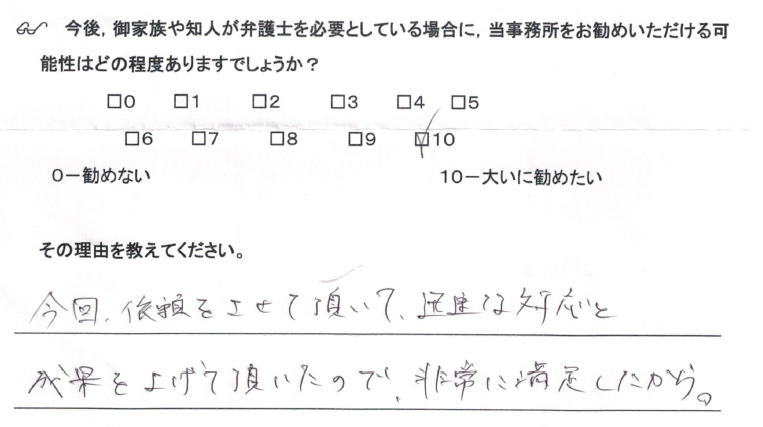 今後，御家族や知人が弁護士を必要としている場合に，当事務所をお勧めいただける可
能性はどの程度ありますでしょうか？
□0 □1 □2 □3 □4 □5
□6 □7 □8 □9 ☑10
0－勧めない 10－大いに勧めたい
その理由を教えてください。
今回、依頼をさせて頂いて、迅速な対応と
成果を上げて頂いたので、非常に満足したから。